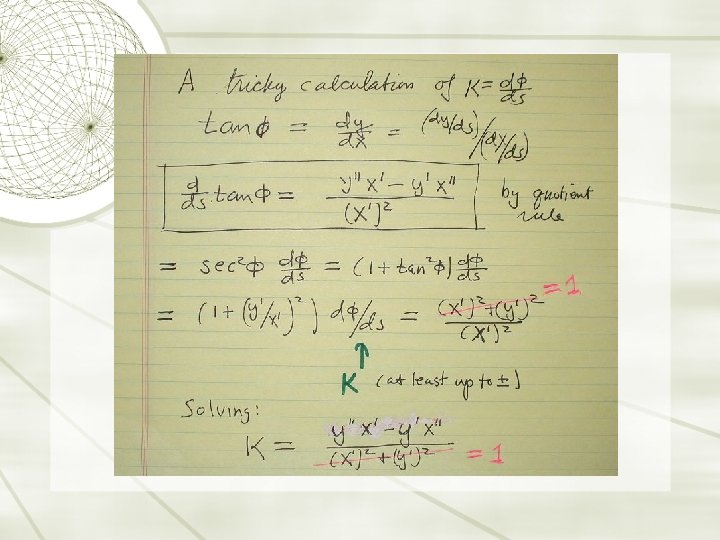 A tricky calculation of K = dφ/ds
tan φ = dy/dx = (dy/ds)/(dx/ds)
d/ds tan φ = (y'' x' - y' x'')/(x')² by quotient rule
= sec² φ dφ/ds = (1 + tan² φ) dφ/ds
= (1 + (y'/x')²) dφ/ds = ((x')² + (y')²)/(x')² = 1
↑
K (at least up to ±)
Solving:
K = (y'' x' - y' x'')/((x')² + (y')²) = 1